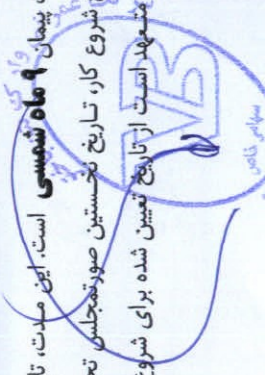 پیمان ۹ ماه شمسی است. این مدت، تا
شروع کار، تاریخ نخستین صورتمجلس تح
متعهد است از تاریخ تعیین شده برای شروع
سهامی خاص